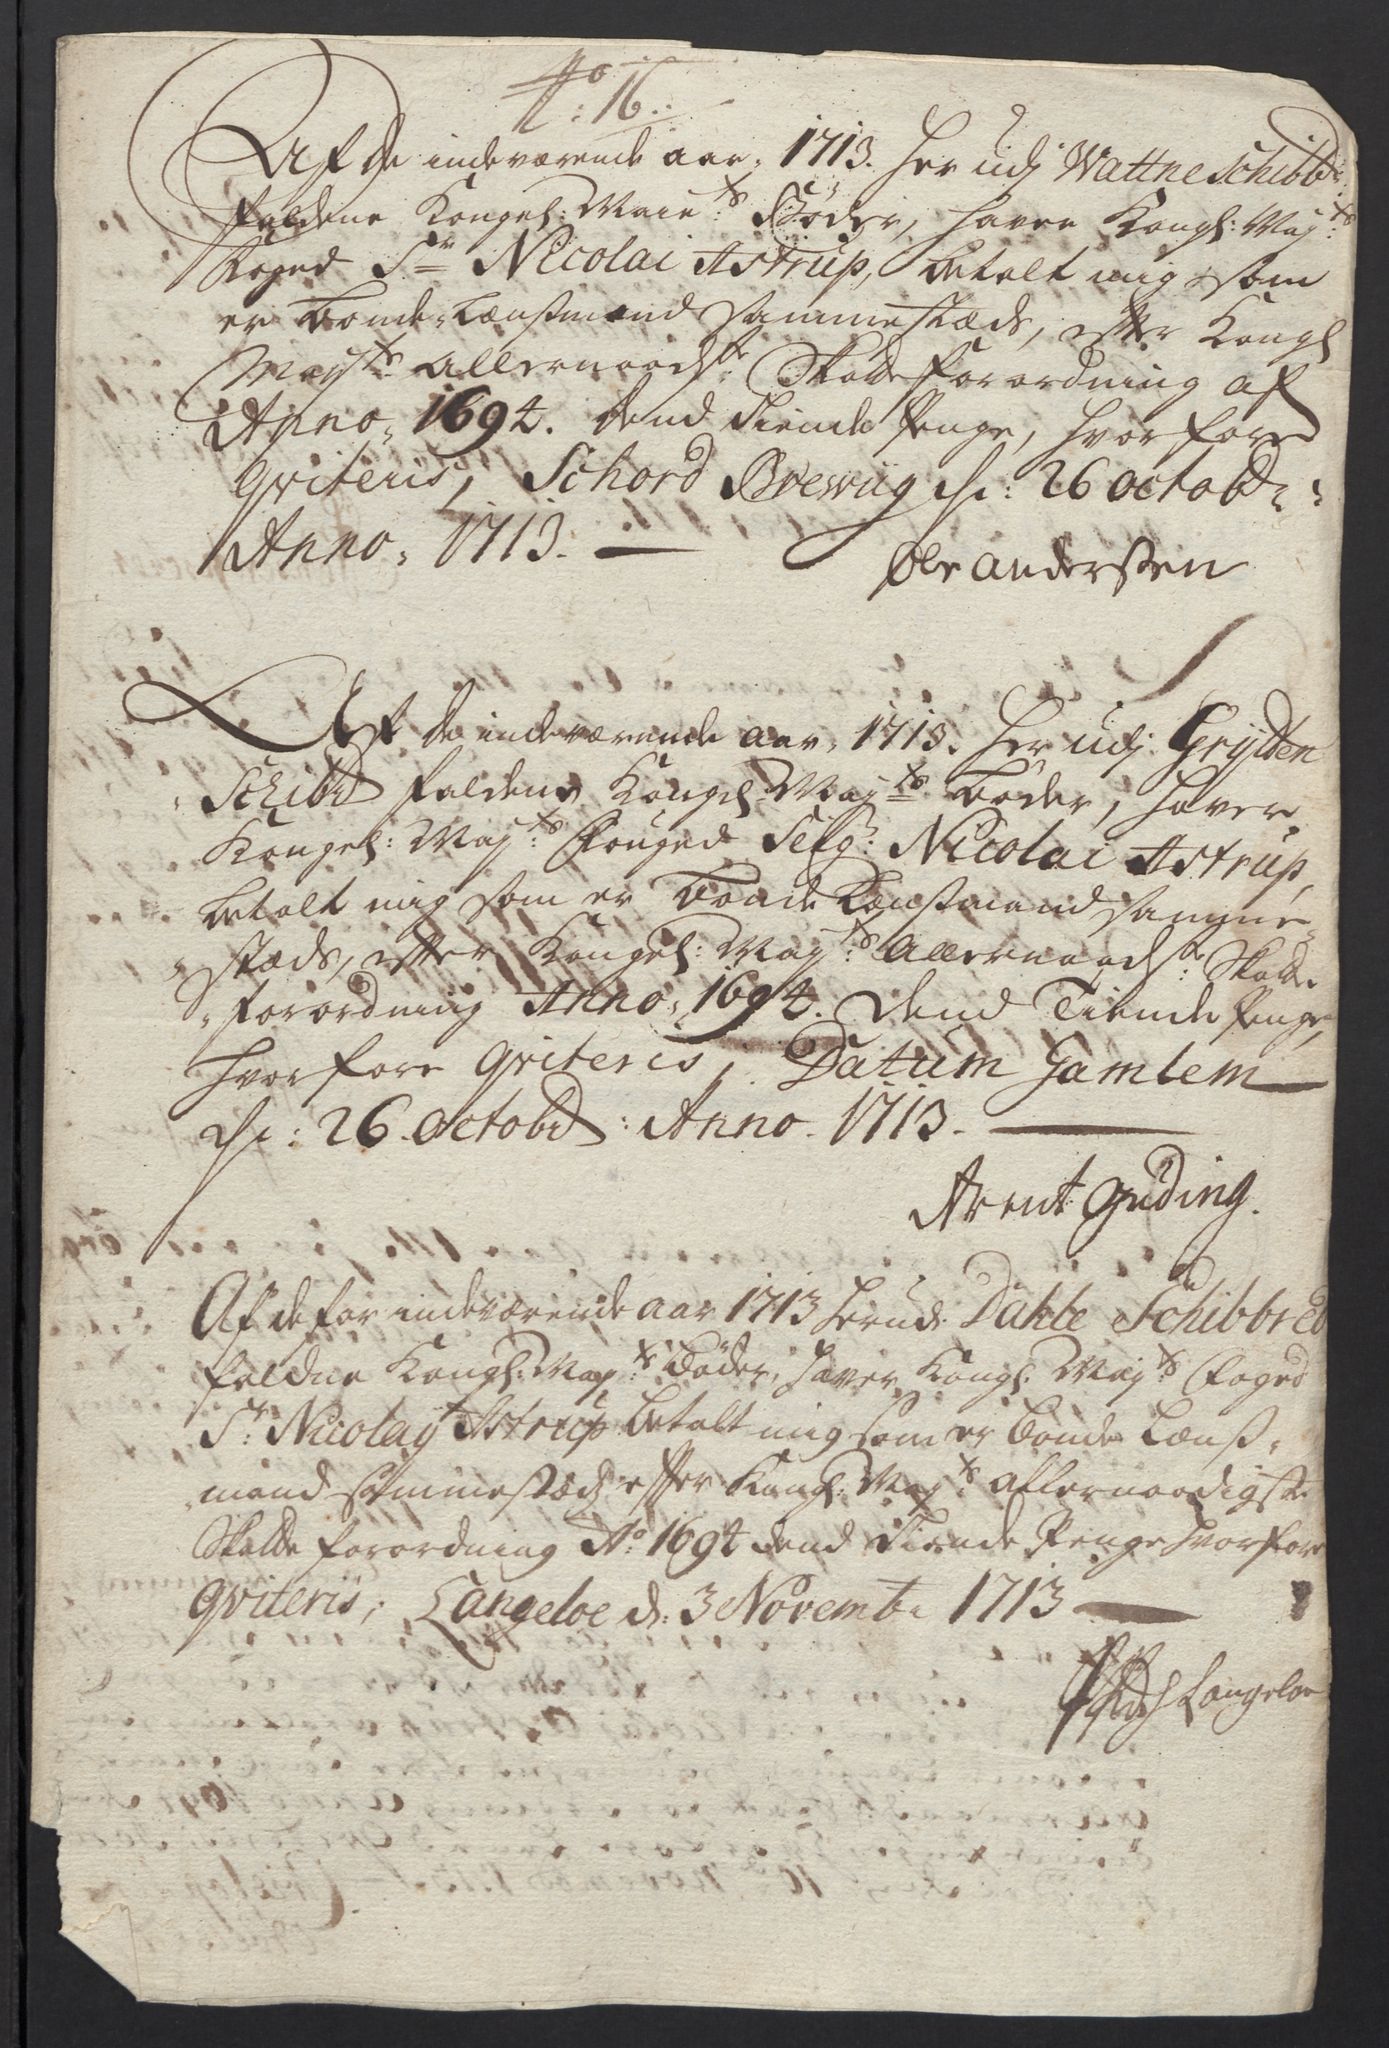 No: 16.
Af de indeværende aar, 1713. her udj Wattne Schibbr:
faldene Kongel: Maie:ts Bøder, haver Kongl: Maj:ts
Foged Sr Nicolai Astrup, betalt mig som
er Bonde-Lænsmand sammestæds, efter Kongl
Mayts allernaadste: Skatte forordning af
Anno, 1694. dend Tiende Penge, hvorfore
qviteris, Schord Brewiig d: 26 octobr:
Anno, 1713.
Ole Andersen
Af de indeværende aar, 1713. her udj Grytten
Schibr faldene Kongel: Maj:ts Bøder, haver
Kongel: Maj:ts Fouged Seigr: Nicolai Astrup,
betalt mig som er Bonde Lænsmand samme-
stæds, efter Kongel: May:ts allernaadste: Skatte
forordning Anno, 1694. dend Tiende Penge,
hvorfore qviteris, Datum Gamlem
d: 26 octobr: Anno. 1713.
Arent Guding.
Af de for indeværende aar 1713 her udi Dahle Schibbred
faldne Kongl: May:ts Bøder, haver Kongl: Maj:ts Foged
Sr: Nicolay Astrup betalt mig som er bonde Lænß-
mand sammestæds efter Kongl: May:ts allernaadigste
Skatte forordning Ao: 1694 dend Tiende Penge hvorfore
qviteris, Langeloe d: 3 Novembr 1713
Langeloe